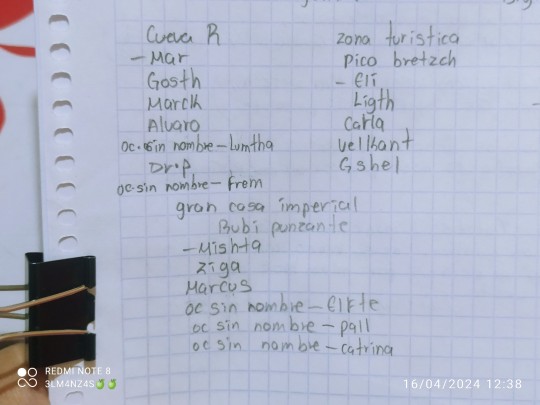 Cueva R
- Mar
Gosth
Marck
Alvaro
oc. sin nombre - Lumtha
Dr.P
oc. sin nombre - Frem
zona turistica
Pico bretzch
- Eli
Ligth
Carla
vellkant
Gshel
gran casa imperial
Bubi punzante
- Mishta
ziga
Marcus
oc sin nombre - Elkte
oc sin nombre - pall
oc sin nombre - catrina
REDMI NOTE 8
3LM4NZ4S🍏🍏
16/04/2024 12:38